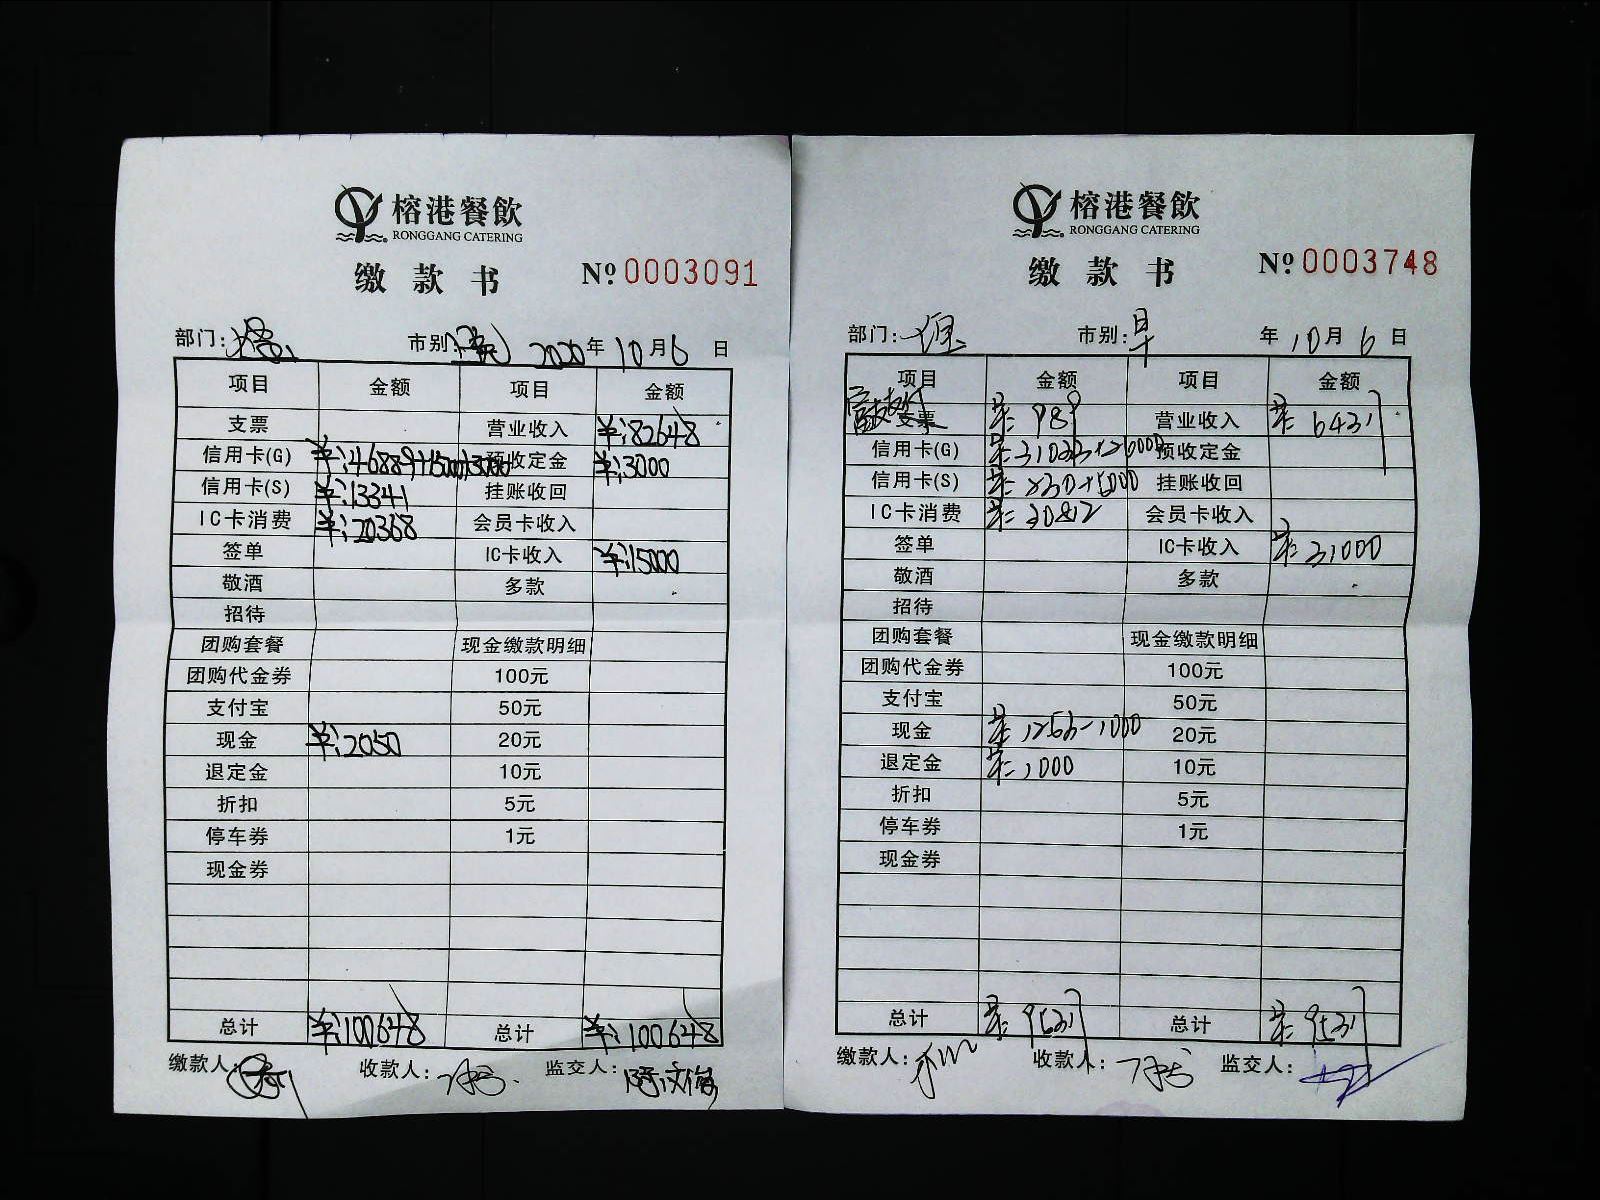 榕港餐飲
RONGGANG CATERING
缴款书 № 0003091
部门: 市别: 2020年10月6日
项目 金额 项目 金额
支票 营业收入 ¥:82648
信用卡(G) ¥:46889+15000+3000 预收定金 ¥:3000
信用卡(S) ¥:13341 挂账收回
IC卡消费 ¥:20368 会员卡收入
签单 IC卡收入 ¥:15000
敬酒 多款
招待
团购套餐 现金缴款明细
团购代金券 100元
支付宝 50元
现金 ¥:2050 20元
退定金 10元
折扣 5元
停车券 1元
现金券
总计 ¥:100648 总计 ¥:100648
缴款人: 收款人: 监交人:
榕港餐飲
RONGGANG CATERING
缴款书 № 0003748
部门: 市别: 早 年10月6日
项目 金额 项目 金额
支票 营业收入
信用卡(G) 预收定金
信用卡(S) 挂账收回
IC卡消费 会员卡收入
签单 IC卡收入 31000
敬酒 多款
招待
团购套餐 现金缴款明细
团购代金券 100元
支付宝 50元
现金 20元
退定金 1000 10元
折扣 5元
停车券 1元
现金券
总计 总计
缴款人: 收款人: 监交人: